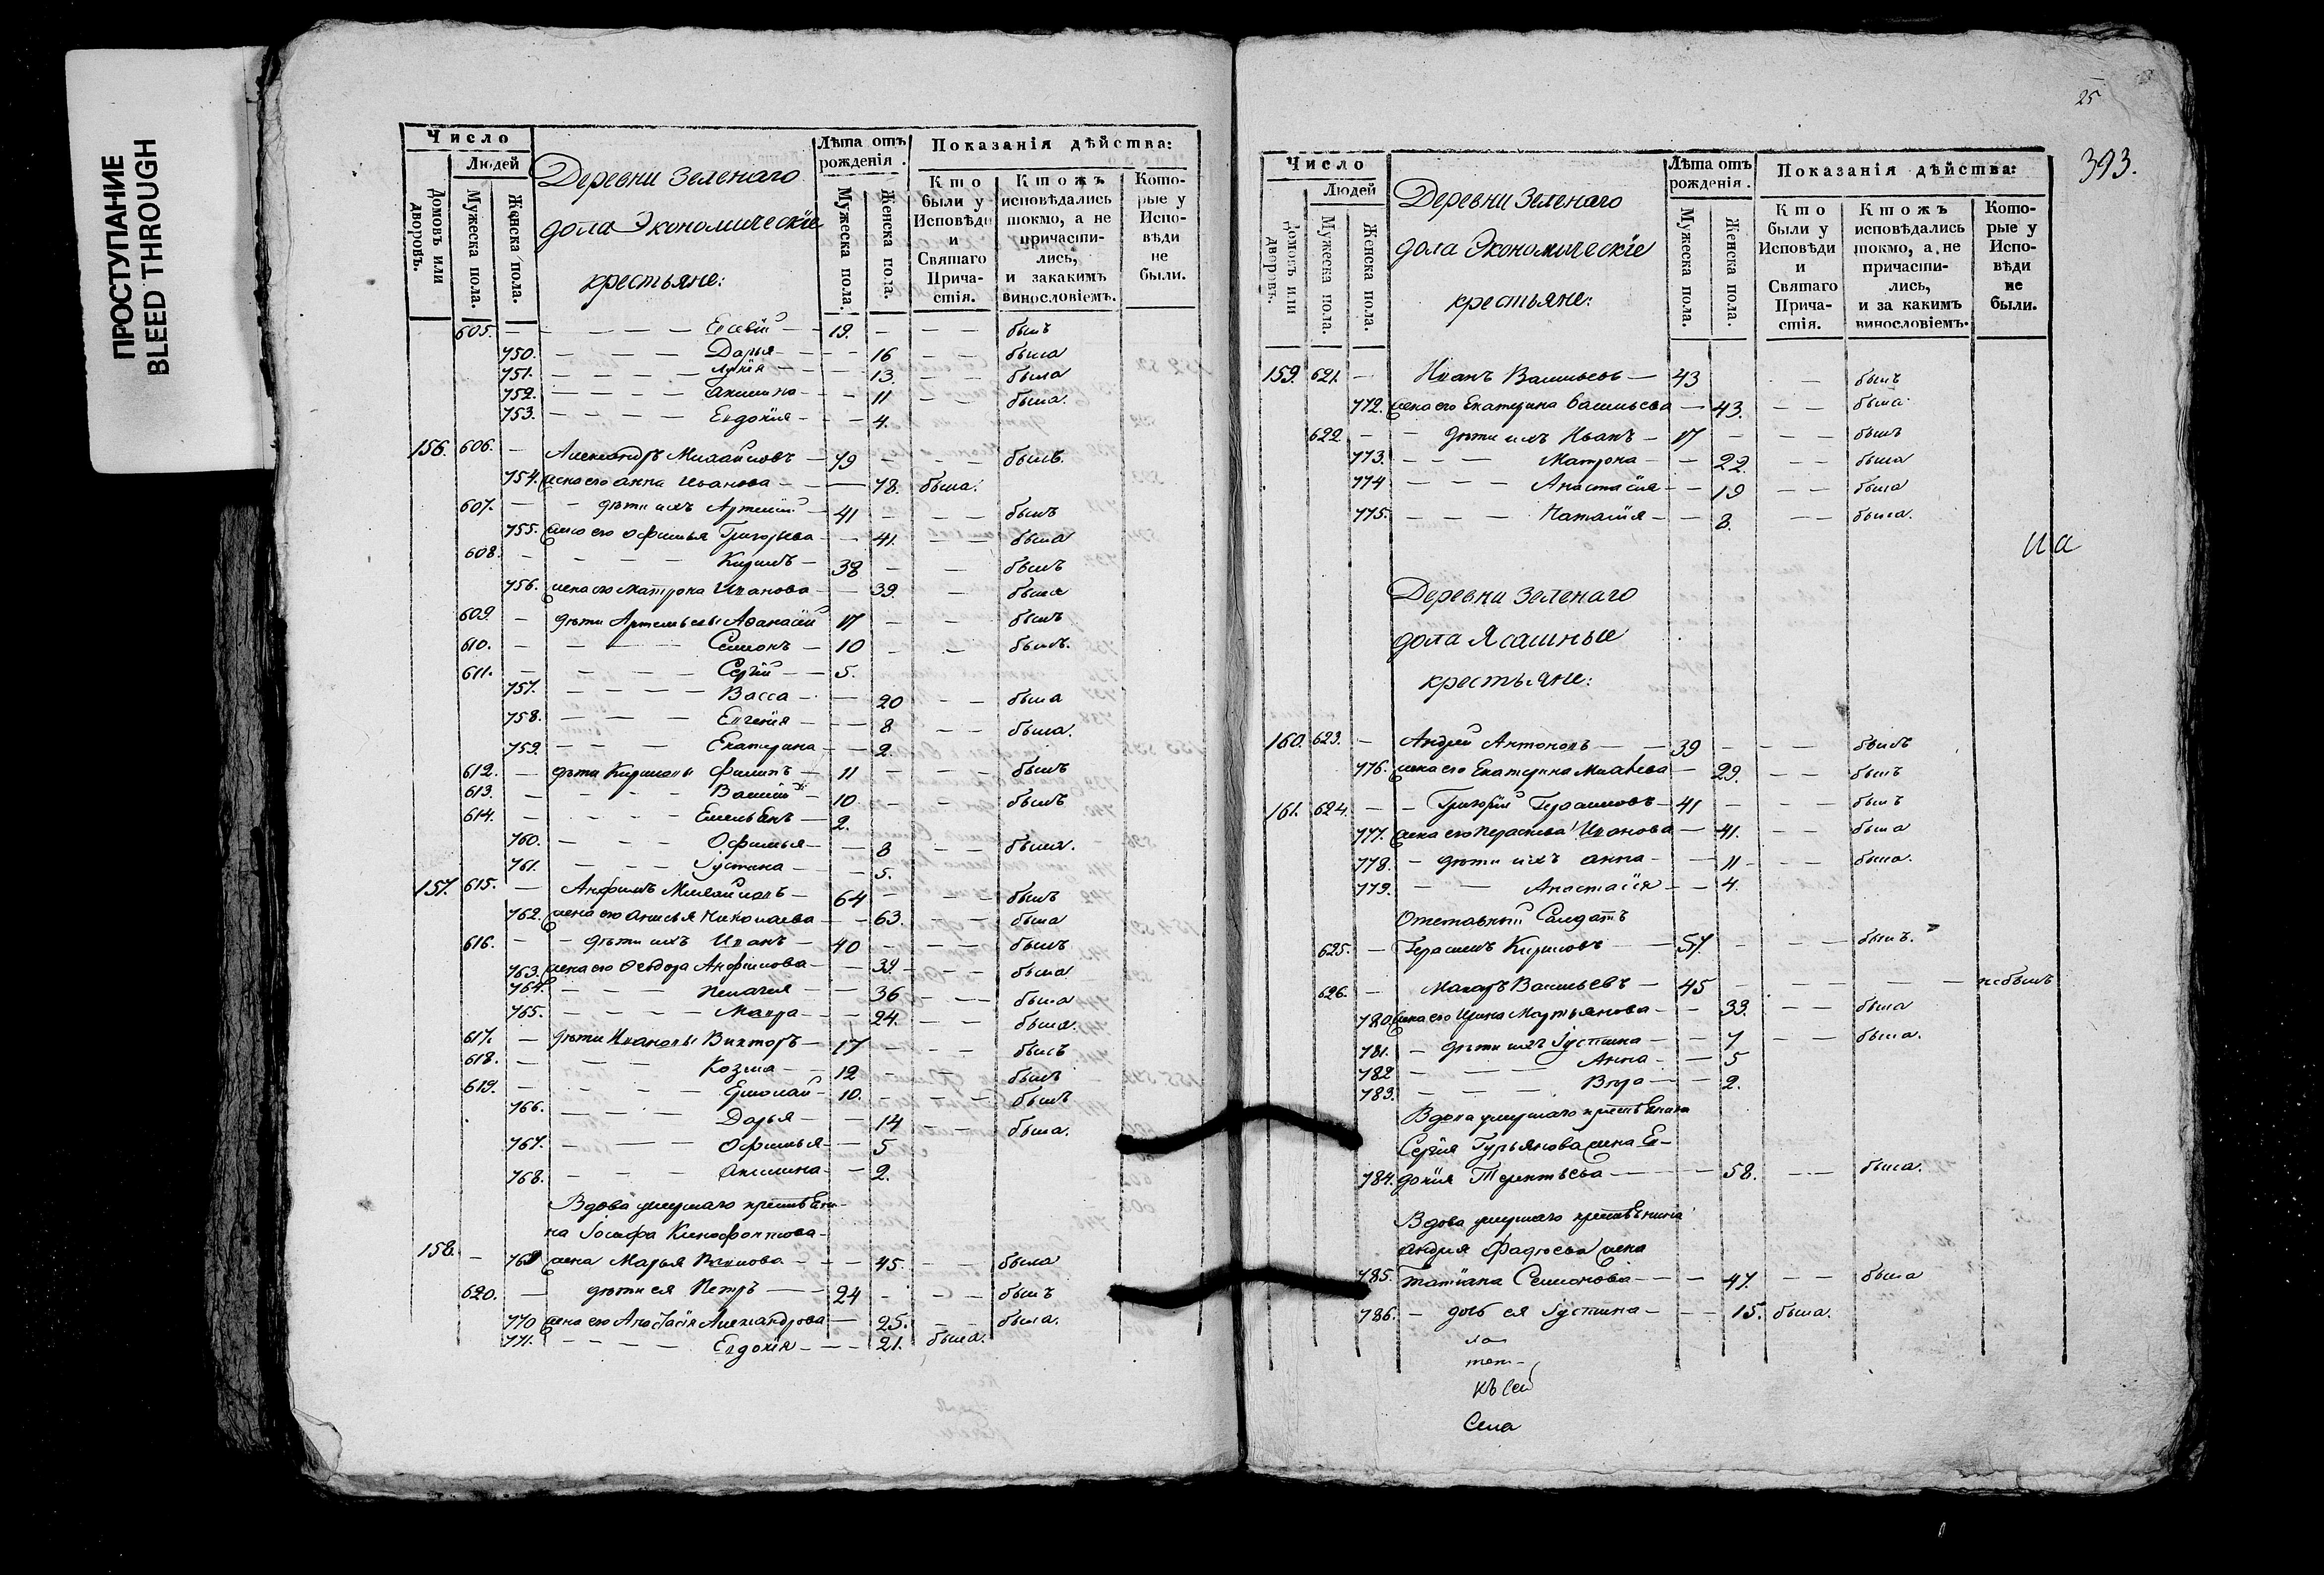 ПРОСТУПАНИЕ
BLEED THROUGH
Число
Людей
Домовъ или дворовъ.
Мужеска пола.
Женска пола.
Деревни Зеленаго
дола Экономическіе
крестьяне:
Лѣта отъ рожденія.
Мужеска пола.
Женска пола.
Показанія дѣйства:
Кто были у Исповѣди и Святаго Причастія.
Ктожъ исповѣдались токмо, а не причастились, и закакимъ винословіемъ.
Которые у Исповѣди не были.
605. — — — — Евсевій — 19. — — — былъ
750. — — — Дарья — — 16 — — была
751. — — — — 13. — — была
752. — — — — Акилина — — 11 — — была.
753. — — — — Евдокія — — 4.
156. 606. — Александръ Михайловъ — 79 — — — былъ.
754. жена его Анна Иванова — — 78. была.
607. — — дѣти ихъ Артемій — 41 — — — былъ
755. жена его Офимья Григорьева — — 41. — — была
608. — — — — Кирилъ — 38 — — былъ
756. жена его Матрона Иванова — — 39. — была
609. — дѣти Артемьевы Афанасій 17 — — былъ
610. — — — Семіонъ — 10 — — былъ.
611. — — — — Сергій — — 5.
757. — — — — Васса — — 20 — — была
758. — — — Евгенія — — 8 — — была.
759. — — — Екатерина — — 2.
612. — дѣти Кириловы Филипъ — 11 — — — былъ
613. — — — — Василій — 10. — — былъ
614. — — — — Емельянъ — 2.
760. — — — Офимья — — 8 — — была.
761. — — — Іустина — — 5.
157. 615. — Анфимъ Михайловъ — 64 — — — былъ
762. жена его Анисья Николаева — — 63. — — была
616. — — дѣти ихъ Иванъ — 40 — — — былъ
763. жена его Феодора Анфимова — — 39 — — — была
764. — — — Пелагея — — 36 — — — была
765. — — — — Мавра — — 24. — — была.
617. — дѣти Ивановы Викторъ — 17 — — — былъ
618. — — — Козма — — 12 — — — былъ
619. — — — — Ермолай — 10. — — — былъ
766. — — — — Дарья — — 14 — — была.
767. — — — Офимья — — 5
768. — — — Акилина — — 2.
Вдова умершаго крестьяни-
на Іосифа Ксенофонтова
158. — 769 жена Марья — — — 45. — — была
620. — дѣти ея Петръ — — 24 — — — былъ
770 жена его Анастасія Александрова — 25. — — была.
771. — — — — Евдокія — — — 21. была.
25
393.
Число
Людей
Домовъ или дворовъ.
Мужеска пола.
Женска пола.
Деревни Зеленаго
дола Экономическіе
крестьяне:
Лѣта отъ рожденія.
Мужеска пола.
Женска пола.
Показанія дѣйства:
Кто были у Исповѣди и Святаго Причастія.
Ктожъ исповѣдались токмо, а не причастились, и за какимъ винословіемъ.
Которые у Исповѣди не были.
159. 621. — Иванъ Васильевъ — 43 — былъ
772. жена его Екатерина Васильева — 43. — — была
622. — — дѣти ихъ Иванъ — 17 — — — былъ
773. — — — Матрона — — 22. — — была
774 — — — Анастасія — — 19 — — была
775. — — — Наталія — — 8. — — была.
Деревни Зеленаго
дола Ясашные
крестьяне:
160. 623. — Андрей Антоновъ — — 39 — — — былъ
776. жена его Екатерина — 29. — — былъ
161. 624. — — Григорій Герасимовъ — 41 — — — былъ
777. жена его Параскева Иванова — 41. — — была
778. — дѣти ихъ Анна — — 11 — — была.
779. — — Анастасія — — 4.
Отставный Салдатъ
625. — Герасимъ Кириловъ — — 57. — — — былъ.
626. — Макаръ Васильевъ — 45 — — — — небылъ
780 жена его Ирина Мартьянова — — 33. — — была
781. — дѣти ихъ Іустина — — 7 — — была.
782 — — — Анна — — 5
783. — — — Вѣра — — 2.
Вдова умершаго крестьянина
Сергія Гурьянова жена Ев-
784. докія Терентьева — — — 58. — — была.
Вдова умершаго крестьянина
Андрея Фадѣева жена
785. Татіана Семіонова — — — 47. — — была
786. — дочь ея Іустина — — — 15. была.
къ сей
Села